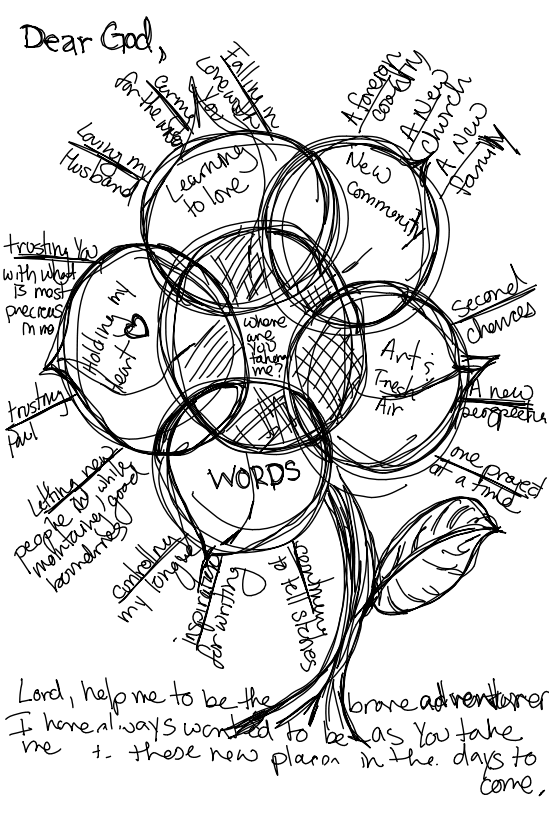 Dear God,
Learning
to love
Loving my
Husband
Caring
for the
You
Falling in
Love with
New
community
A foreign
country
A New
church
A New
family
Art is
Fresh
Air
second
chances
A new
perspective
one project
at a time
WORDS
controlling
my tongue
inspiration
for writing
continuing
to tell stories
Holding my
heart
trusting You
with what
is most
precious
to me
trusting
Paul
Letting new
people in while
maintaining good
boundaries
where
are
you
taking
me?
Lord, help me to be the brave adventurer
I have always wanted to be as You take
me to these new places in the days to
come.